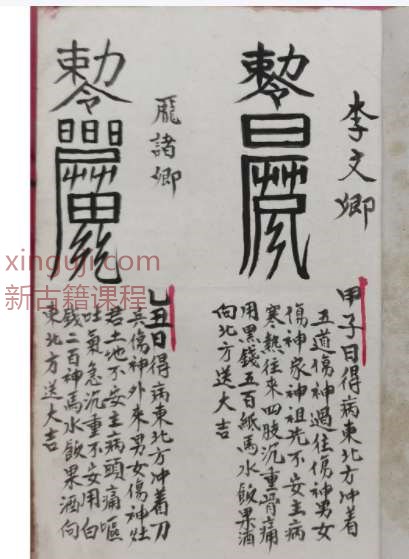 李文卿
敕令
甲子日得病東北方冲着
五道傷神過往傷神男女
傷神家神祖先不安主病
寒熱往來四肢沉重骨痛
用黑錢五百紙馬水飲果酒
向北方送大吉
龐諸卿
敕令
乙丑日得病東北方冲着刀
兵傷神外來男女傷神灶
君土地不安主病頭痛嘔
吐氣急沉重不安用白
錢二百神馬水飲果酒向
東北方送大吉
xingui.com
新古籍课程